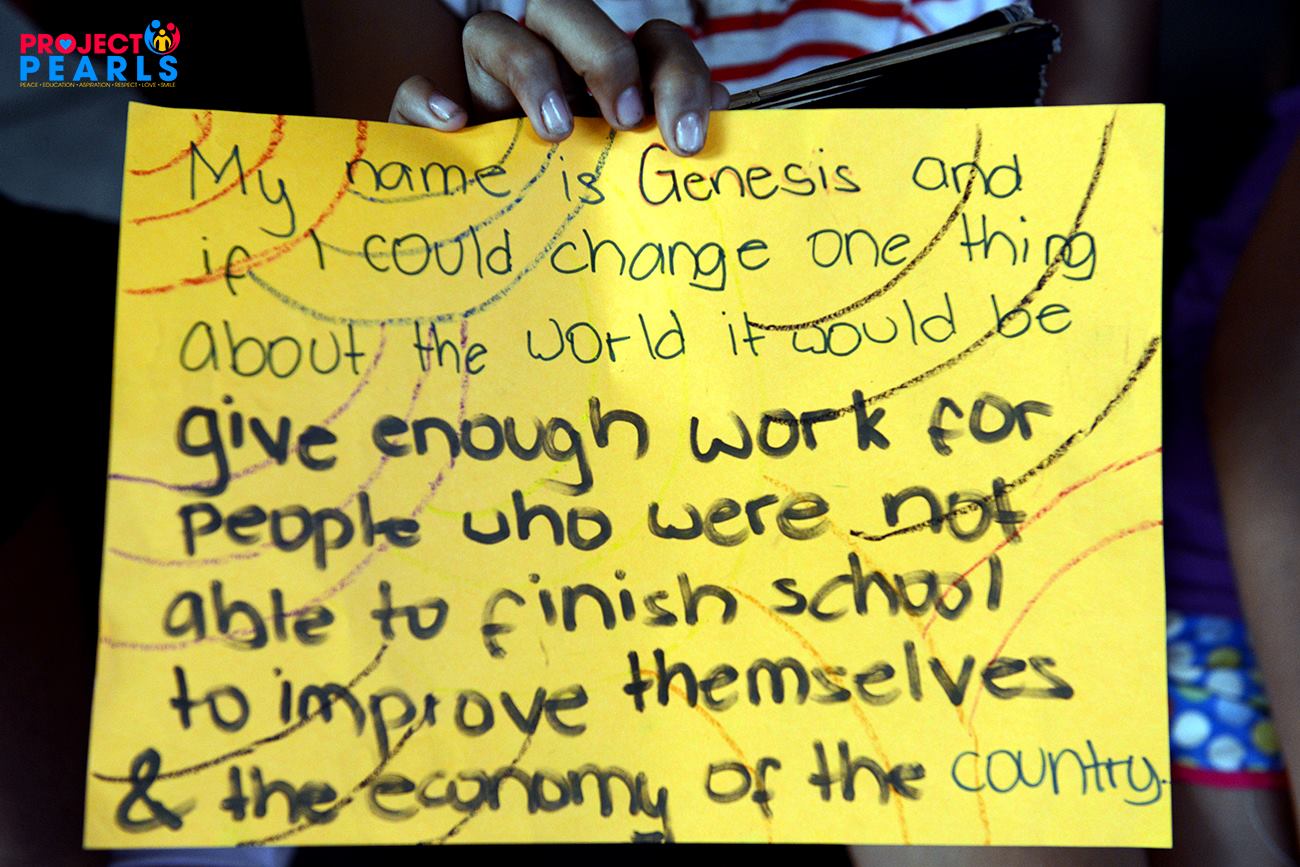 PROJECT
PEARLS
PEACE • EDUCATION • ASPIRATION • RESPECT • LOVE • SMILE
My name is Genesis and
if I could change one thing
about the world it would be
give enough work for
people who were not
able to finish school
to improve themselves
& the economy of the country.